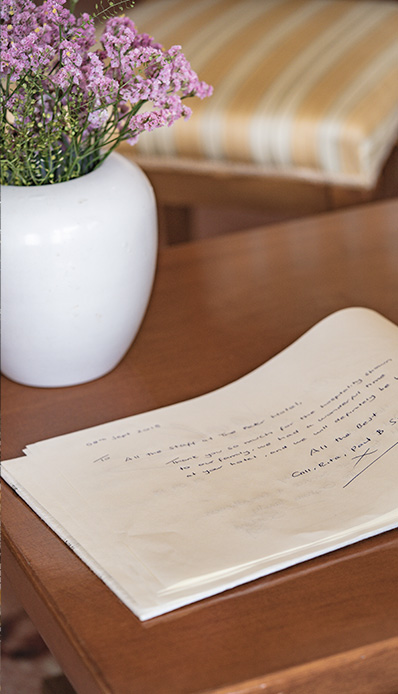 08th Sept 2018
To All the staff of the Peer hotel,
Thank you so much for the hospitality
to our family, we had a wonderful time
at your hotel, and we will definitely be
All the Best
Rita, Paul